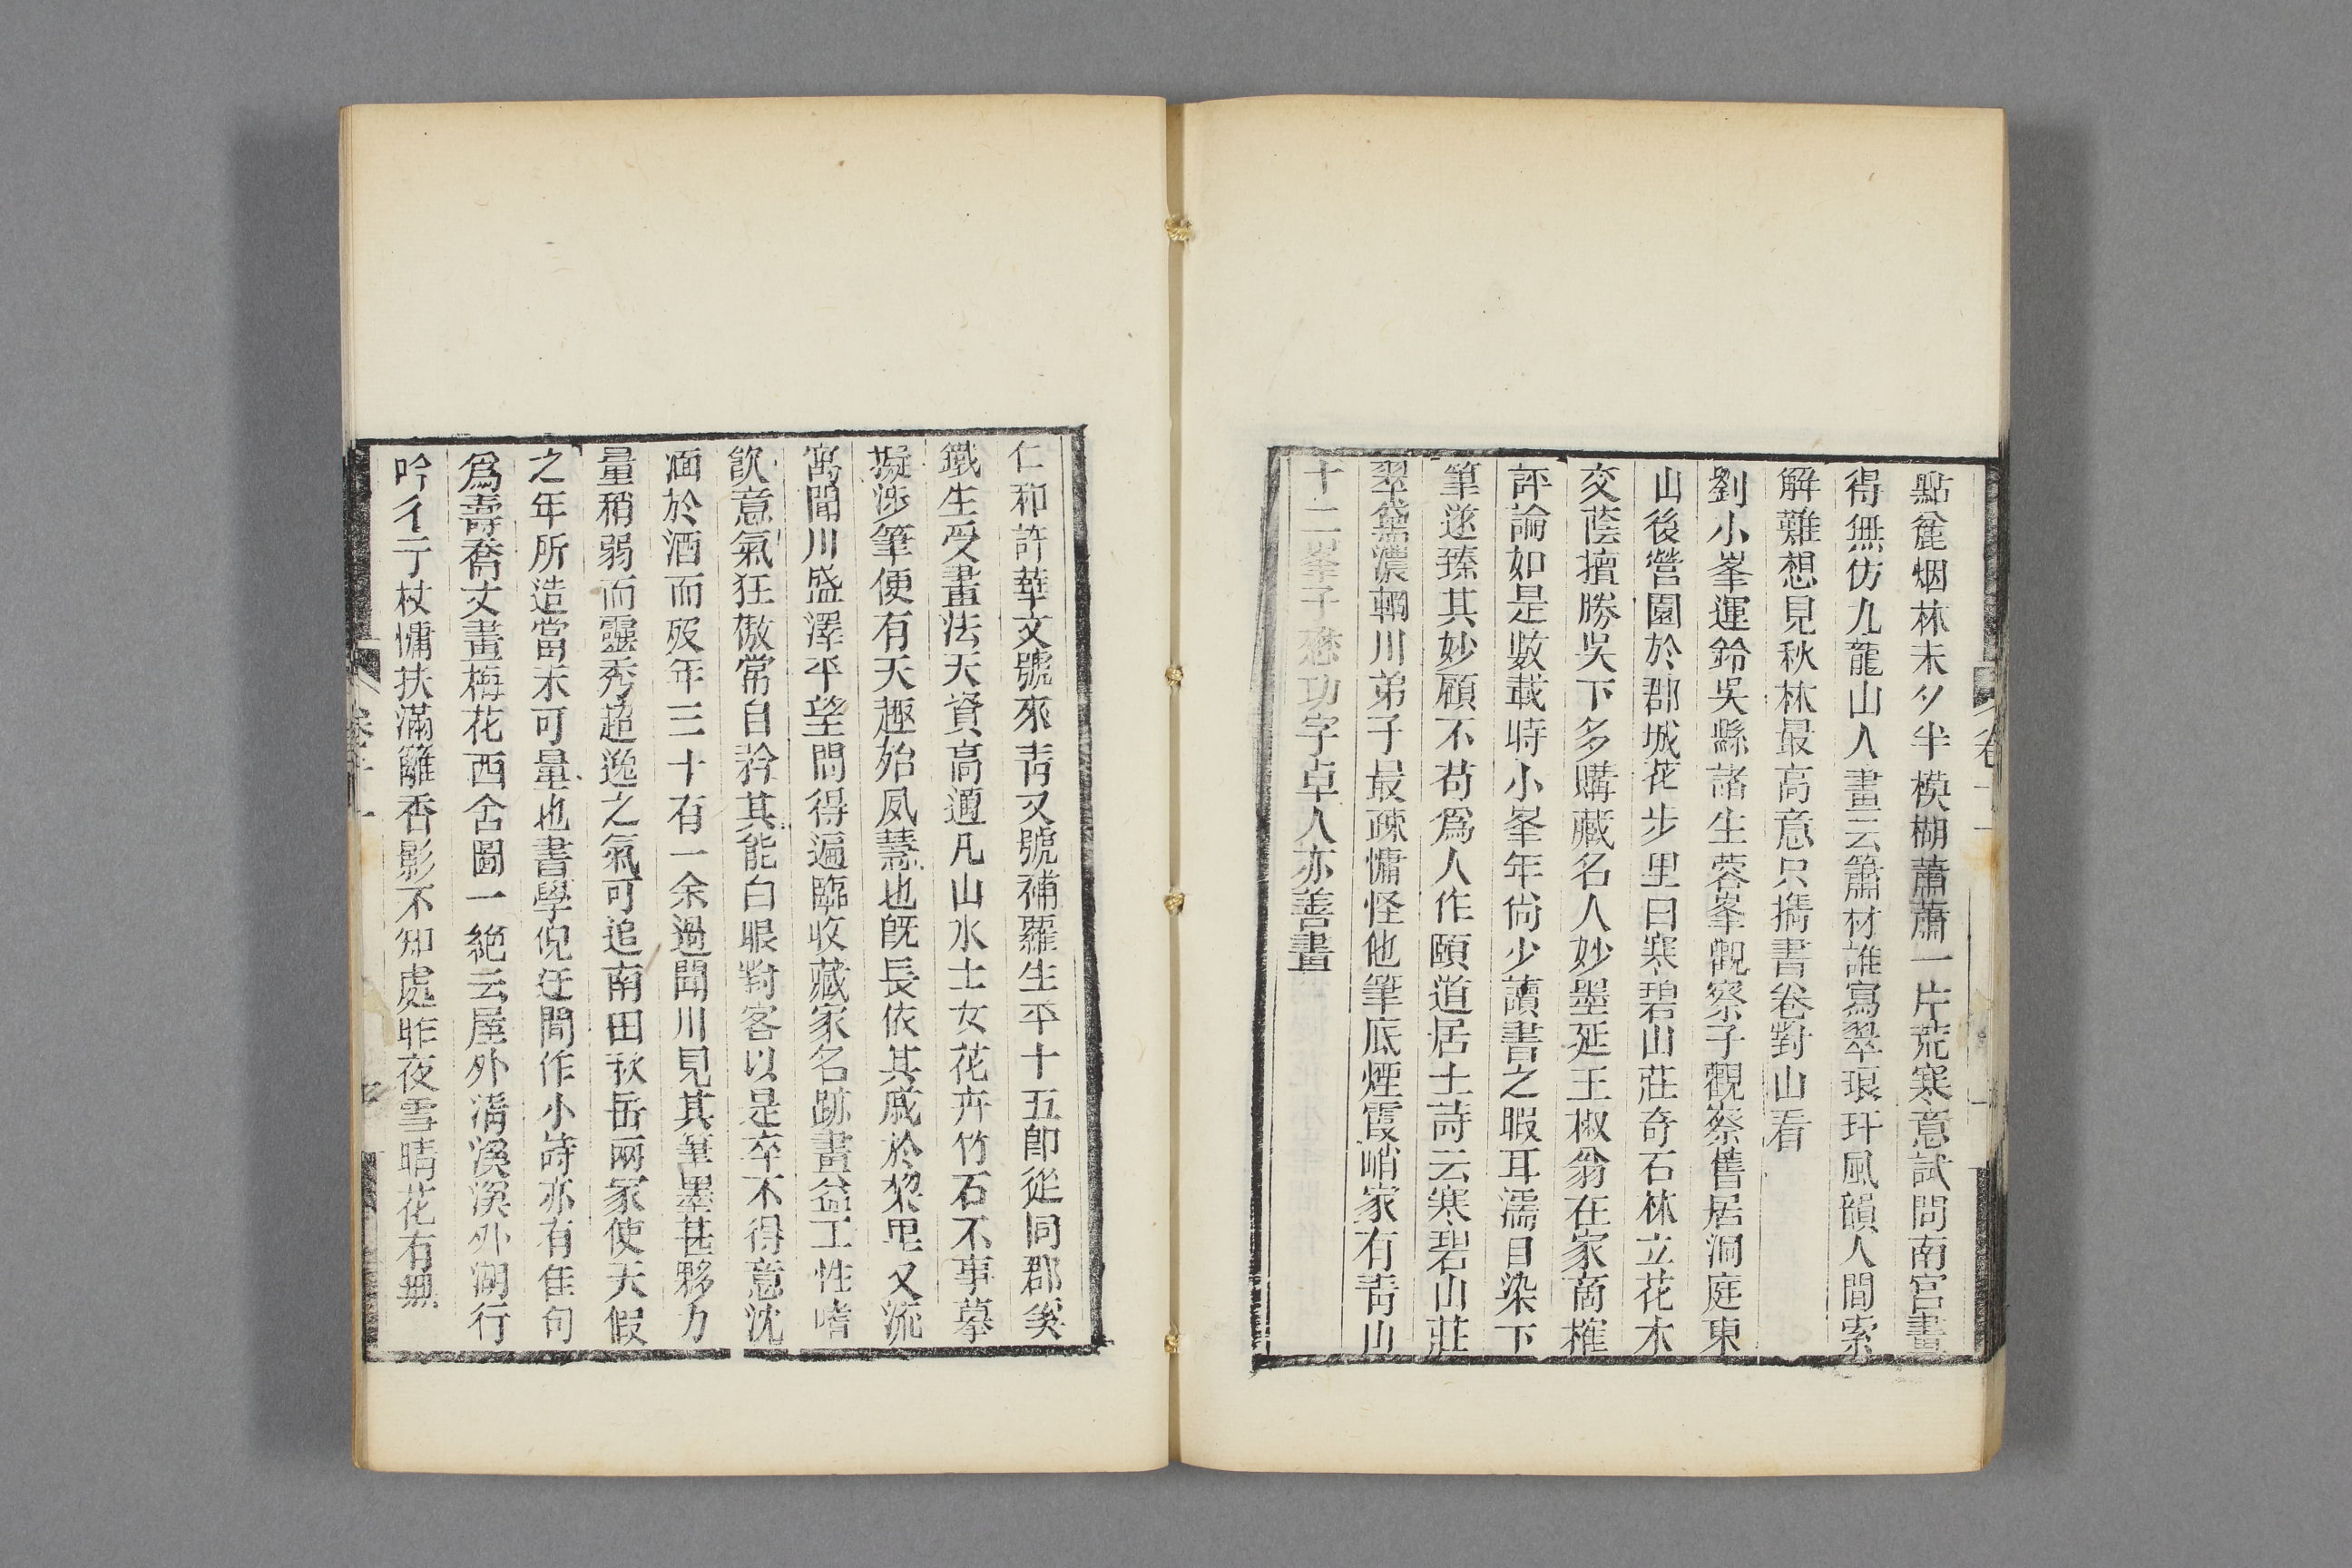 點麄烟林未夕半模糊蕭蕭一片荒寒意試問南宮畫
得無仿九龍山人畫云簫材誰寫翠琅玕風韻人間索
解難想見秋林最高意只攜書卷對山看
劉小峯運鈴吳縣諸生蓉峯觀察子觀察舊居洞庭東
山後營園於郡城花步里曰寒碧山莊奇石林立花木
交蔭擅勝吳下多購藏名人妙墨延王椒翁在家商榷
評論如是數載時小峯年尙少讀書之暇耳濡目染下
筆遂臻其妙顧不苟爲人作頤道居士詩云寒碧山莊
翠黛濃輞川弟子最疎慵怪他筆底煙霞峭家有青山
十二峯子懋功字卓人亦善畫
仁和許華文號來青又號補蘿生平十五卽從同郡奚
鐵生受畫法天資高邁凡山水士女花卉竹石不事摹
擬涉筆便有天趣殆夙慧也旣長依其戚於黎里又流
寓聞川盛澤平望間得遍臨收藏家名跡畫益工性嗜
飲意氣狂傲常自矜其能白眼對客以是卒不得意沈
湎於酒而歿年三十有一余過聞川見其筆墨甚夥力
量稍弱而靈秀超逸之氣可追南田秋岳兩家使天假
之年所造當未可量也書學倪迂間作小詩亦有佳句
爲壽喬丈畫梅花西舍圖一絕云屋外淸溪溪外湖行
吟彳亍杖慵扶滿籬香影不知處昨夜雪晴花有無